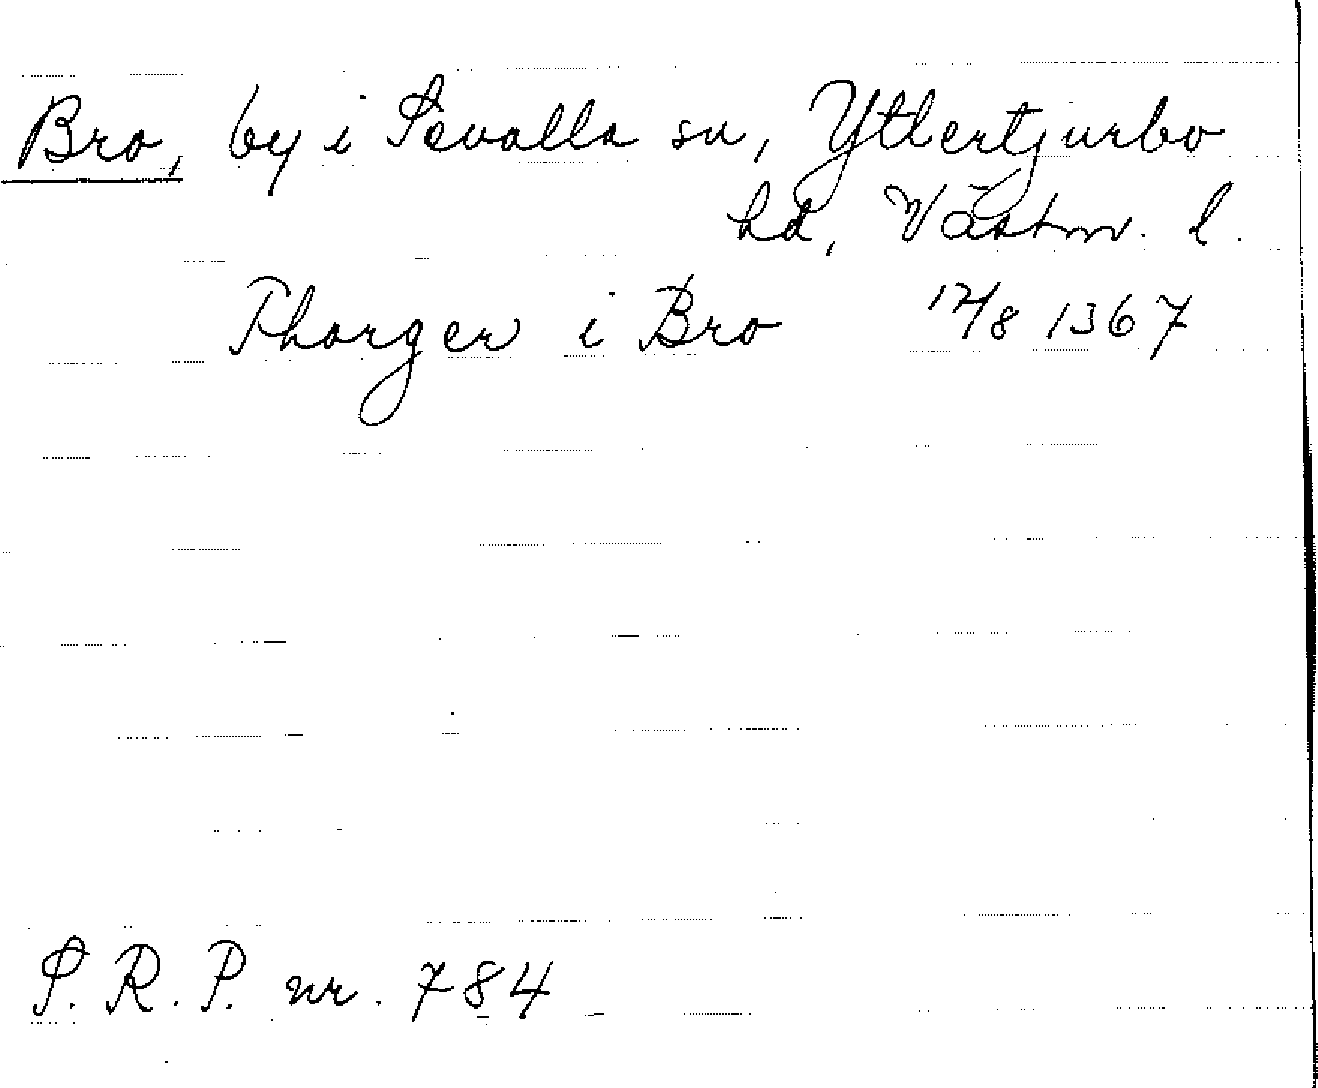 Bro, by i Sevalla sn, Yttertjurbo
hd, Västm. l.
Thorger i Bro 12/8 1367
S. R. P. nr. 784